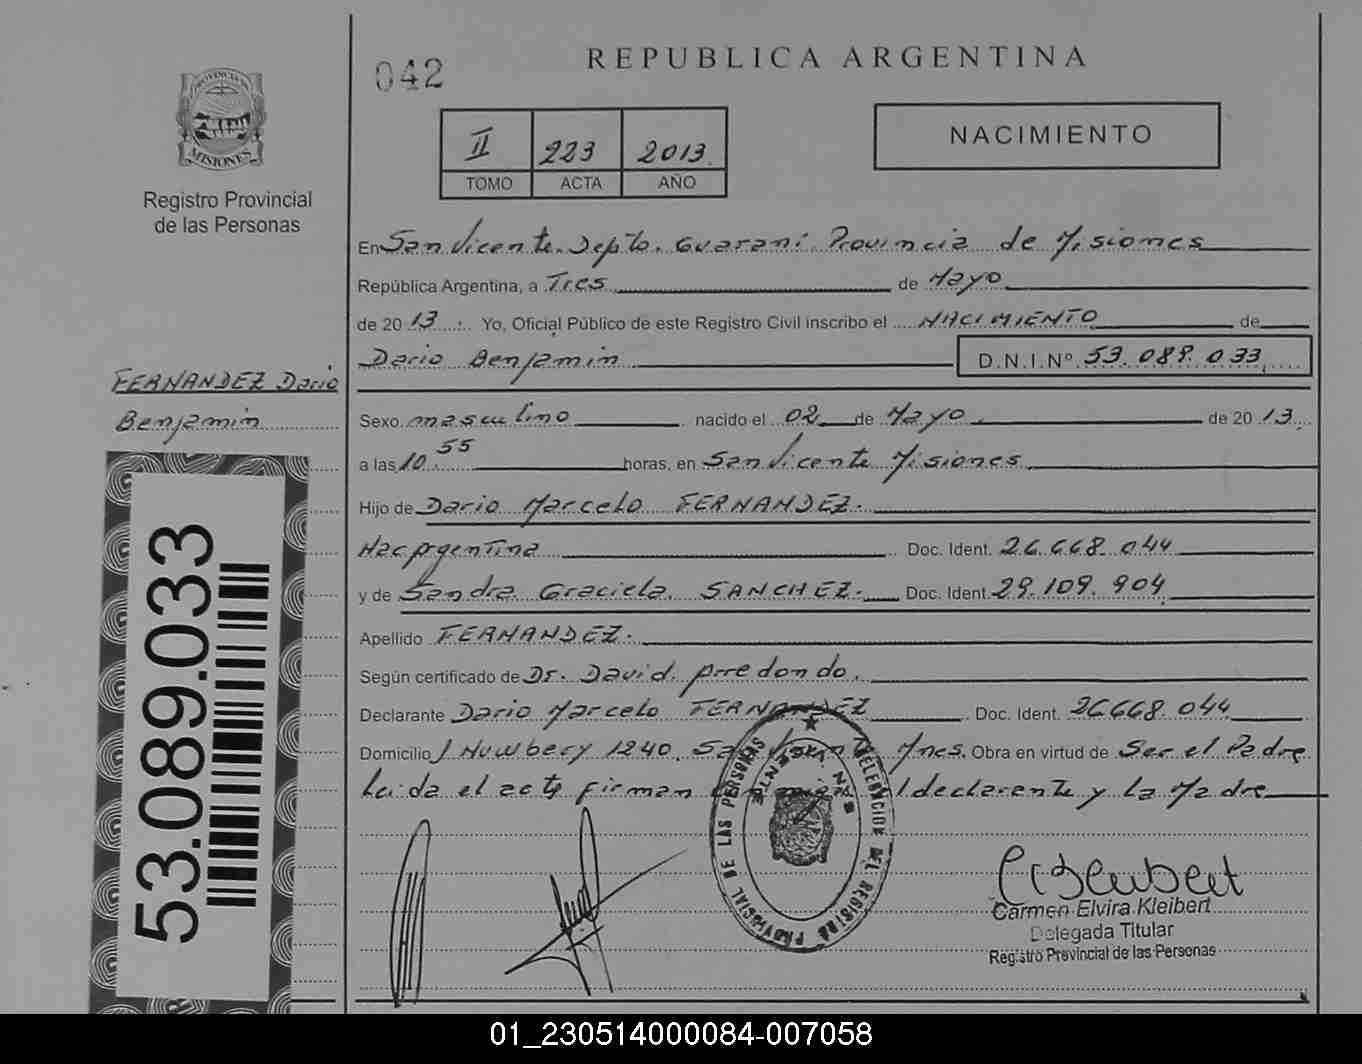 PROVINCIA DE
MISIONES
Registro Provincial
de las Personas
FERNANDEZ Dario
Benjamin
53.089.033
042
REPUBLICA ARGENTINA
II 223 2013
TOMO ACTA AÑO
NACIMIENTO
En San Vicente. Depto. Guarani. Provincia de Misiones
República Argentina, a Tres de Mayo
de 20 13. Yo, Oficial Público de este Registro Civil inscribo el NACIMIENTO de
Dario Benjamin D.N.I.Nº 53.089.033
Sexo masculino nacido el 02 de Mayo de 20 13.
a las 10.55 horas, en San Vicente Misiones
Hijo de Dario Marcelo FERNANDEZ.
Nac Argentina Doc. Ident. 26.668.044
y de Sandra Graciela SANCHEZ. Doc. Ident. 29.109.904
Apellido FERNANDEZ.
Según certificado de Dr. David Arredondo.
Declarante Dario Marcelo FERNANDEZ Doc. Ident. 26668.044
Domicilio J Newbery 1240. San Vicente Mnes. Obra en virtud de Ser el Padre
Leida el acta firman el declarante y La Madre
DELEGACION DEL REGISTRO PROVINCIAL DE LAS PERSONAS
SAN VICENTE
Carmen Elvira Kleibert
Delegada Titular
Registro Provincial de las Personas
01_230514000084-007058